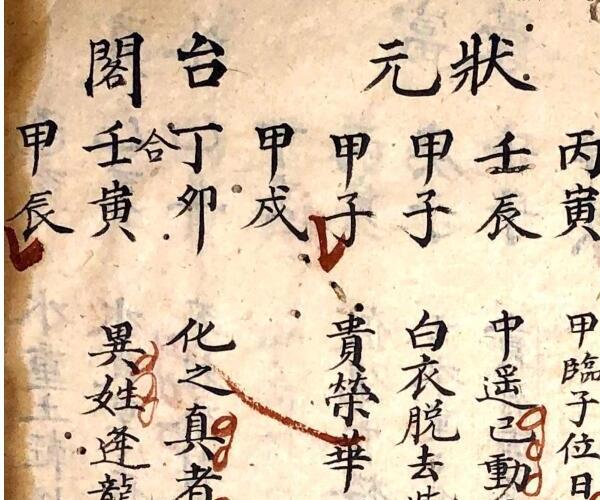 狀元
台閣
丙寅
壬辰
甲子
甲子
甲戌
丁卯
合
壬寅
甲辰
甲臨子位日
中遥已動
白衣脫去
貴榮華
化之真者
異姓逢龍